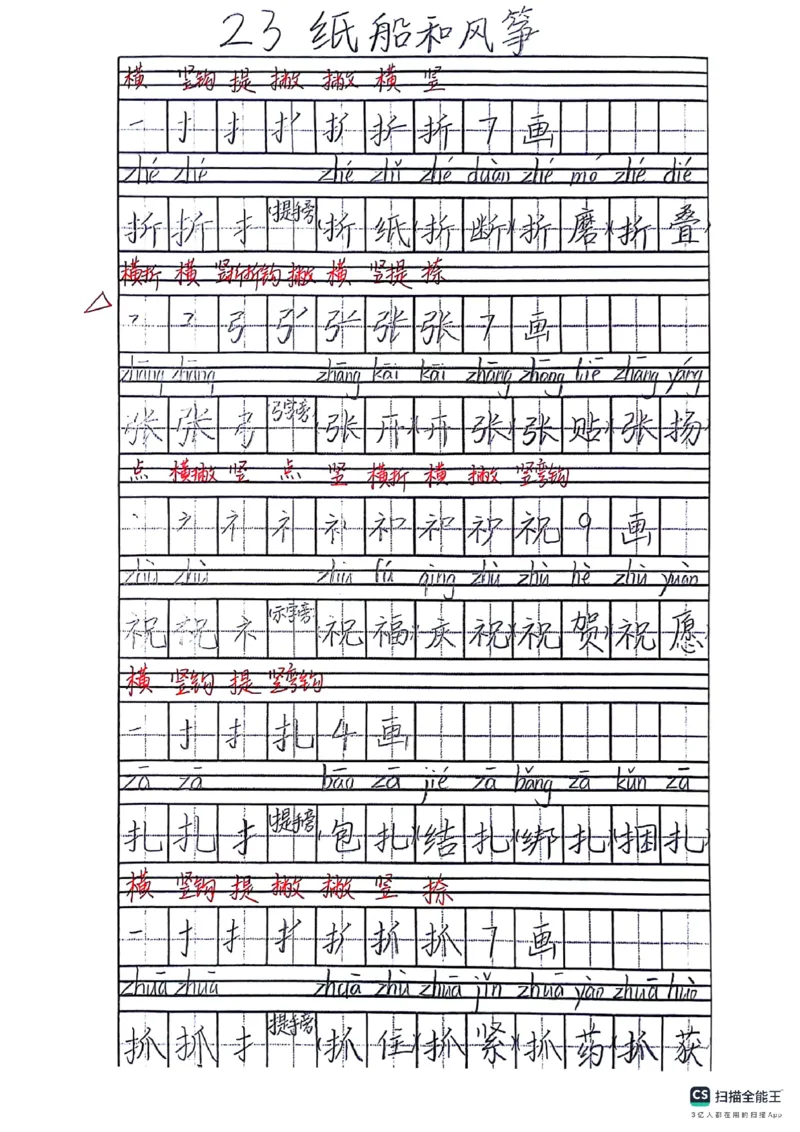 23 纸船和风筝
横 竖钩 提 撇 撇 横 竖
一 扌 扌 折 折 7 画
zhé zhé zhé zhǐ zhé duàn zhé mó zhé dié
折 折 扌 (提手旁) (折 纸) (折 断) (折 磨) (折 叠)
横折 横 竖折折钩 撇 横 竖提 捺
弓 张 张 7 画
zhāng zhāng zhāng kāi kāi zhāng zhāng tiē zhāng yáng
张 张 弓 (弓字旁) (张 开) (开 张) (张 贴) (张 扬)
点 横撇 竖 点 竖 横折 横 撇 竖弯钩
礻 礻 祝 9 画
zhù zhù zhù fú qìng zhù zhù hè zhù yuàn
祝 祝 礻 (示字旁) (祝 福) (庆 祝) (祝 贺) (祝 愿)
横 竖钩 提 竖弯钩
一 扌 扎 4 画
zā zā bāo zā jié zā bǎng zā kǔn zā
扎 扎 扌 (提手旁) (包 扎) (结 扎) (绑 扎) (捆 扎)
横 竖钩 提 撇 撇 竖 捺
一 扌 抓 抓 7 画
zhuā zhuā zhuā zhù zhuā jǐn zhuā yào zhuā huò
抓 抓 扌 (提手旁) (抓 住) (抓 紧) (抓 药) (抓 获)
CS 扫描全能王
3亿人都在用的扫描App